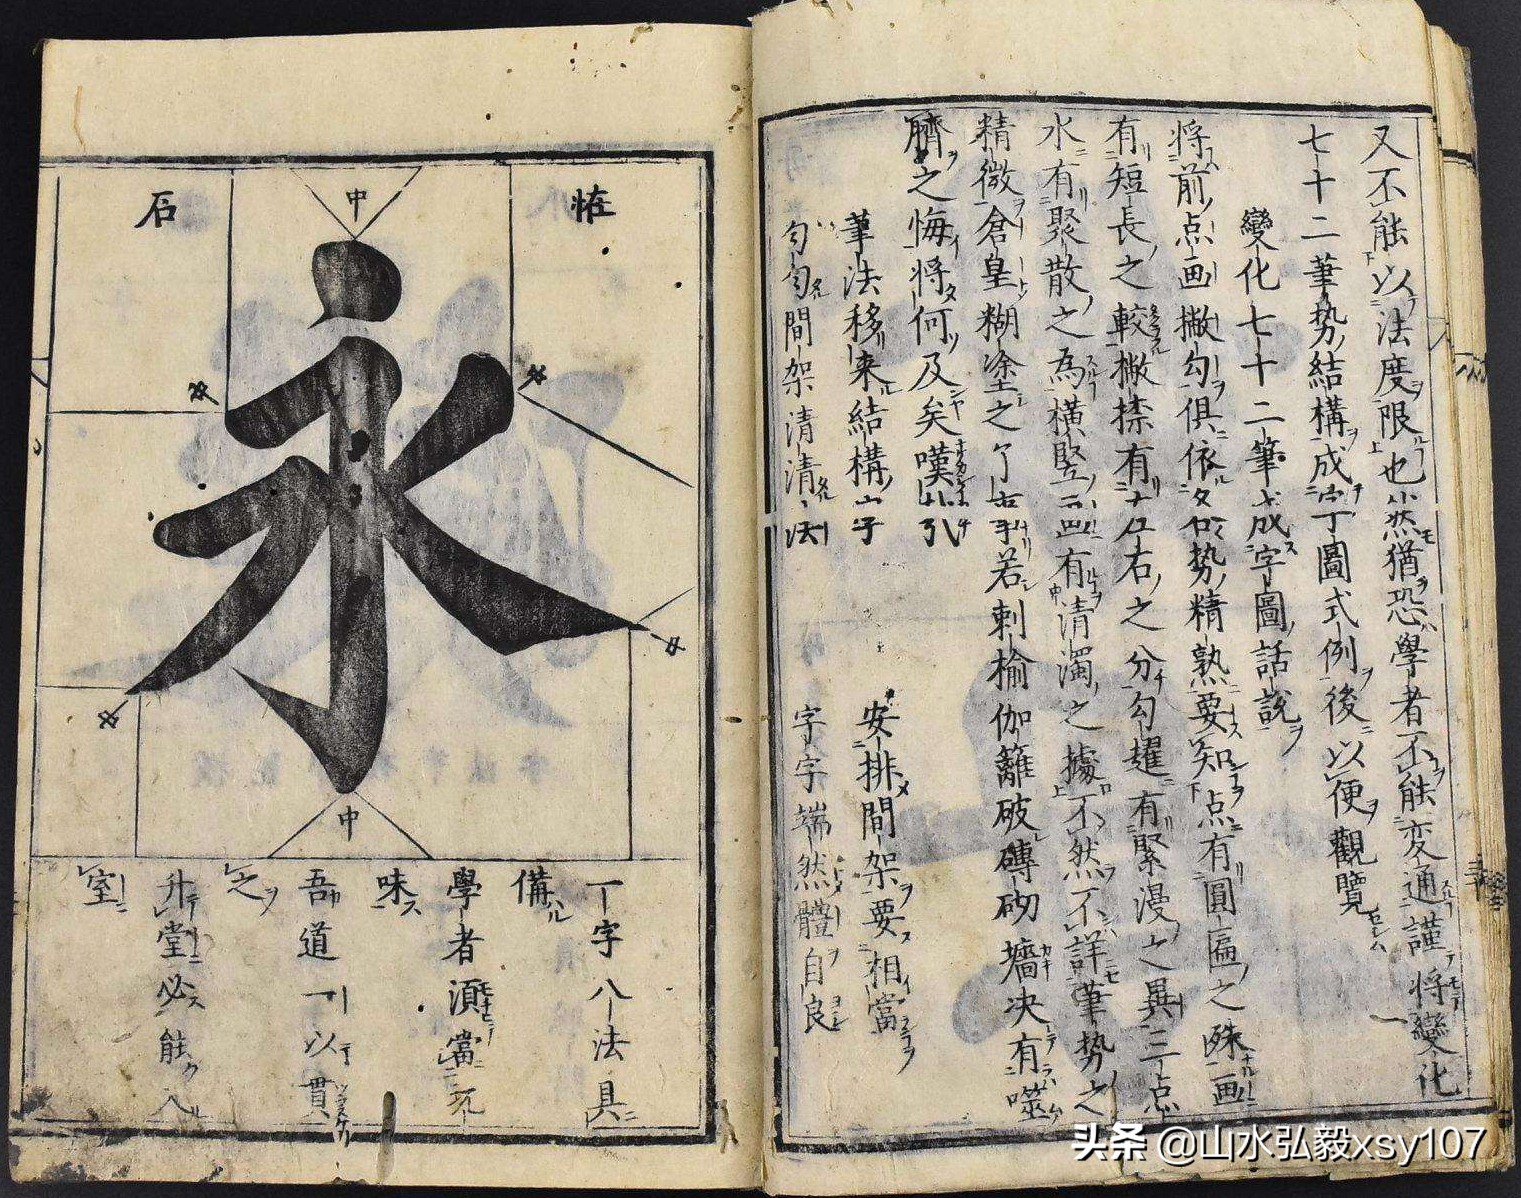 又不能以法度限也然猶恐學者不能変通謹将變化
七十二筆势結構成字圖式例後以便觀覽
變化七十二筆成字圖話說
将前点画撇勾俱依名势精熟要知点有圓匾之殊画
有短長之較撇捺有左右之分勾趯有緊漫之異三点
水有聚散之為横竪二画有清濁之據不然不詳筆势之
精微倉皇糊塗之了字若剌榆伽籬破磚砌墻决有噬
臍之悔将何及矣嘆
筆法移来結構字 安排間架要相當
匀匀間架清清法 字字端然體自良
中
石
永
中
一字八法具
備
學者須當
味
吾道一以貫
之
升堂必能入
室
头条 @山水弘毅xsy107